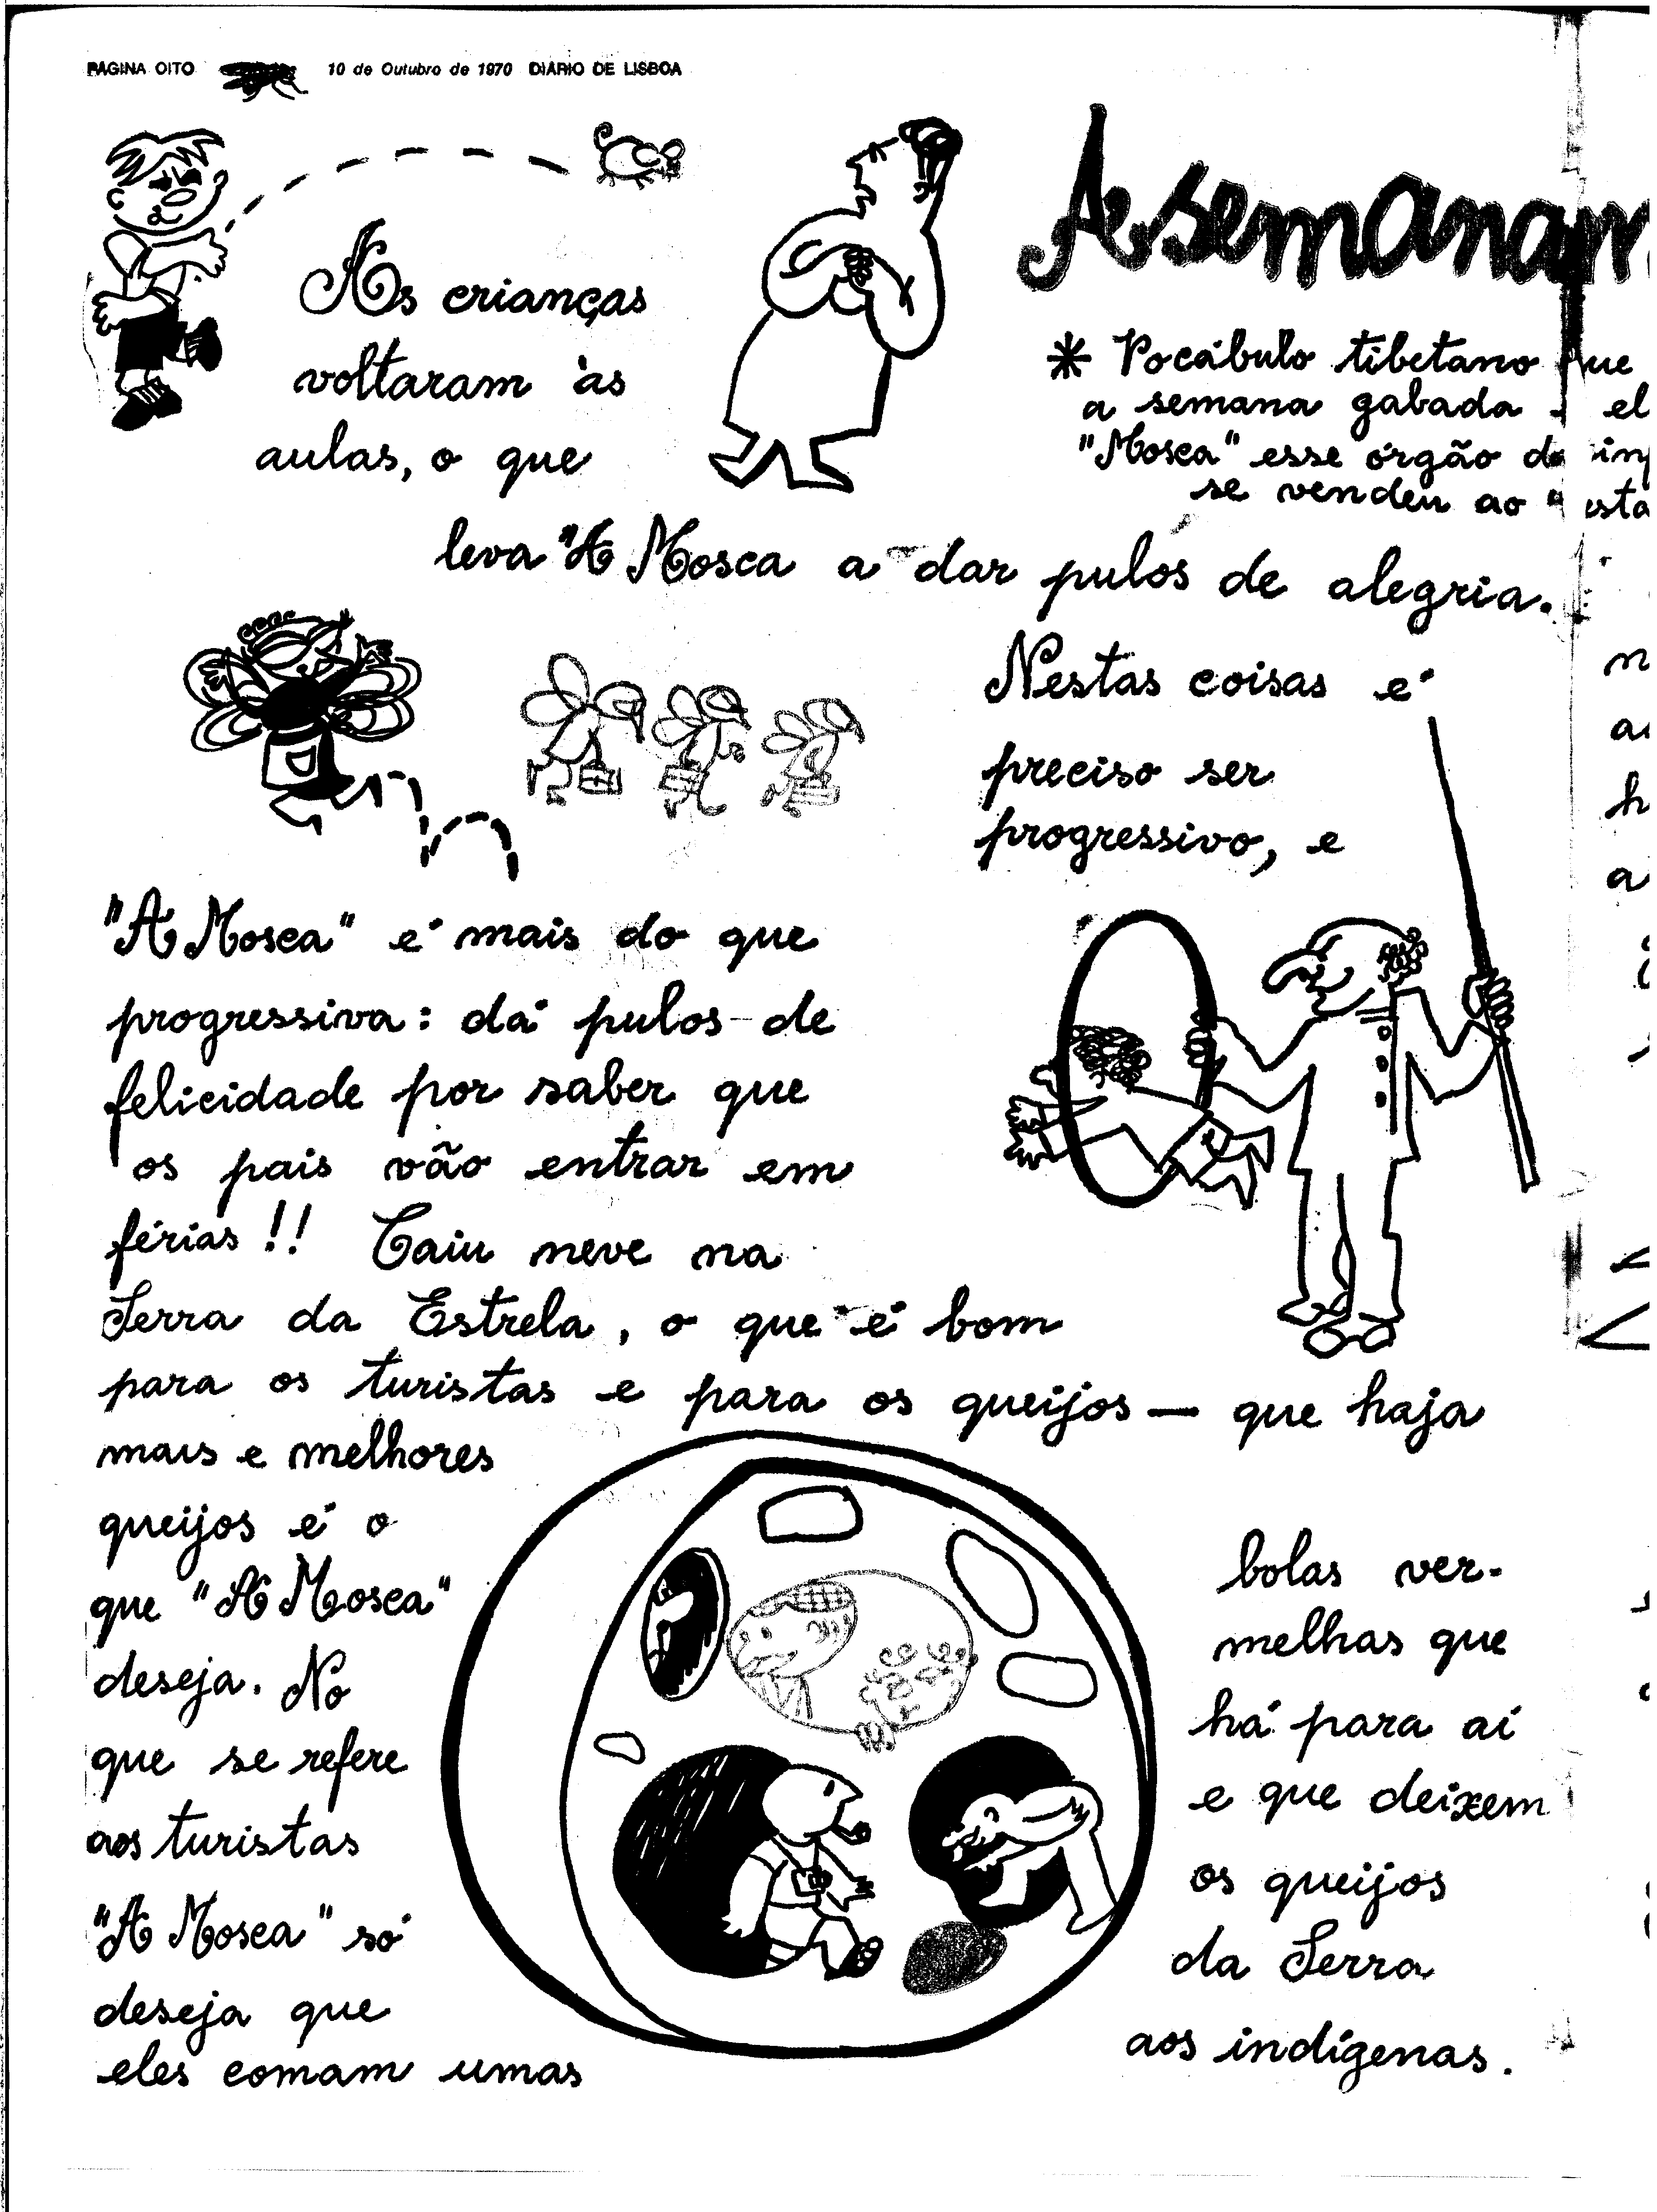 PÁGINA OITO 10 de Outubro de 1970 DIÁRIO DE LISBOA
A semanam
* Vocábulo tibetano que
a semana gabada
"Mosca" esse órgão da
se vendeu ao "
As crianças
voltaram às
aulas, o que
leva "A Mosca a dar pulos de alegria.
Nestas coisas é
preciso ser
progressivo, e
"A Mosca" é mais do que
progressiva: dá pulos de
felicidade por saber que
os pais vão entrar em
férias!! Caiu neve na
Serra da Estrela, o que é bom
para os turistas e para os queijos — que haja
mais e melhores
queijos é o
que "A Mosca"
deseja. No
que se refere
aos turistas
"A Mosca" só
deseja que
eles comam umas
bolas ver-
melhas que
há para aí
e que deixem
os queijos
da Serra
aos indígenas.